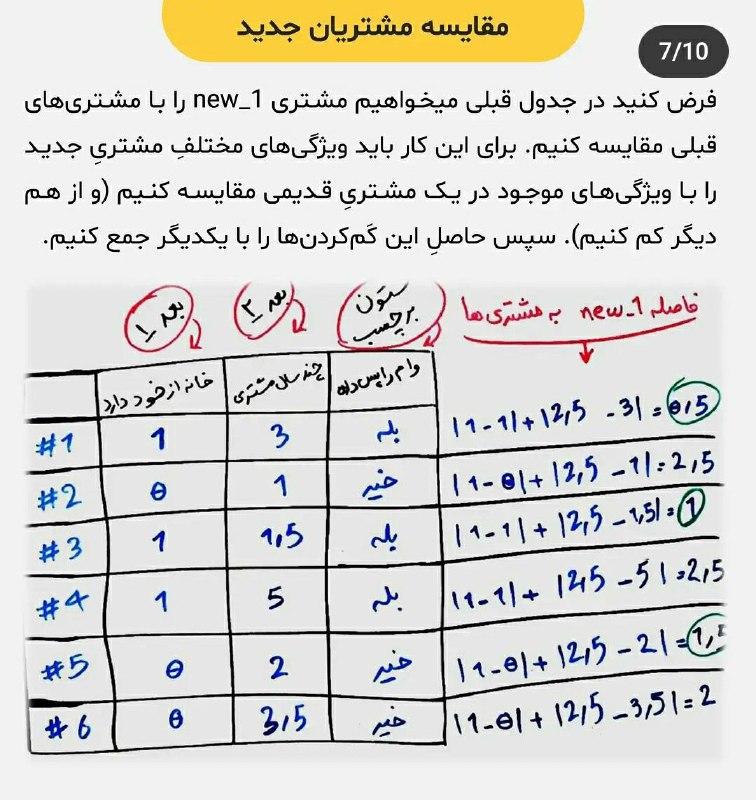 مقایسه مشتریان جدید
7/10
فرض کنید در جدول قبلی میخواهیم مشتری new_1 را با مشتری‌های
قبلی مقایسه کنیم. برای این کار باید ویژگی‌های مختلفِ مشتریِ جدید
را با ویژگی‌های موجود در یک مشتریِ قدیمی مقایسه کنیم (و از هم
دیگر کم کنیم). سپس حاصلِ این کَم‌کردن‌ها را با یکدیگر جمع کنیم.
بعد 1
بعد 2
ستون برچسب
فاصله new_1 به مشتری ها
خانه از خود دارد
چند سال مشتری
وام را پس داده
#1 1 3 بله |1-1|+|2,5 -3|=0,5
#2 0 1 خیر |1-0|+|2,5 -1|=2,5
#3 1 1,5 بله |1-1|+|2,5 -1,5|=1
#4 1 5 بله |1-1|+|2,5 -5|=2,5
#5 0 2 خیر |1-0|+|2,5 -2|=1,5
#6 0 3,5 خیر |1-0|+|2,5 -3,5|=2